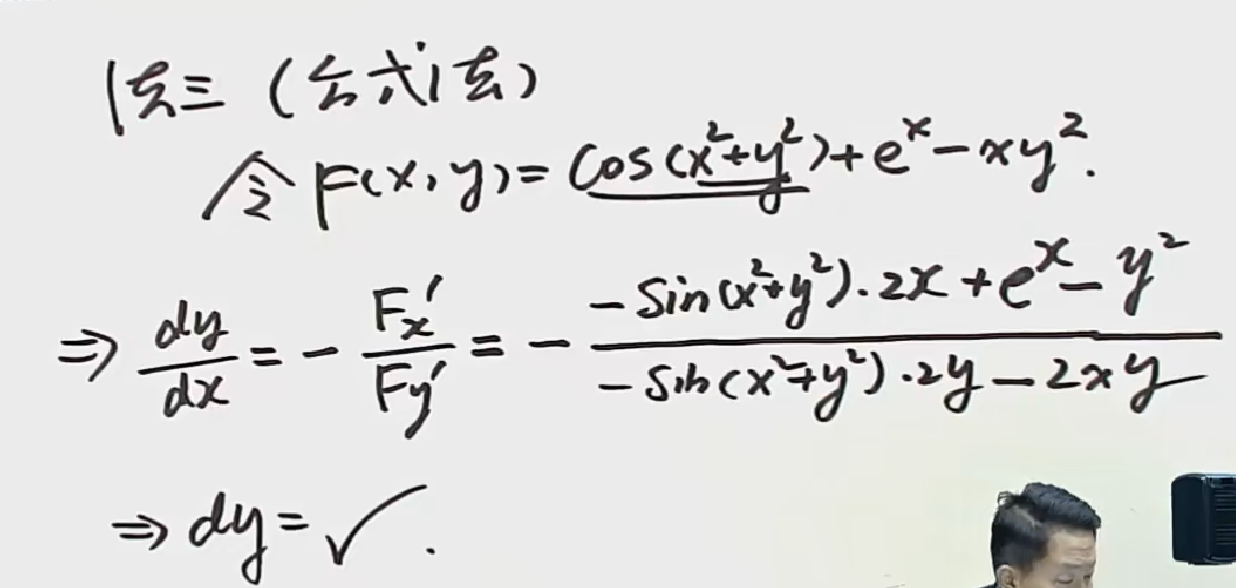 法三（公式法）
令 F(x,y)=cos(x²+y²)+eˣ-xy².
⇒ dy/dx = - Fx′/Fy′ = - (-sin(x²+y²)·2x+eˣ-y²)/(-sin(x²+y²)·2y-2xy)
⇒ dy=✓.